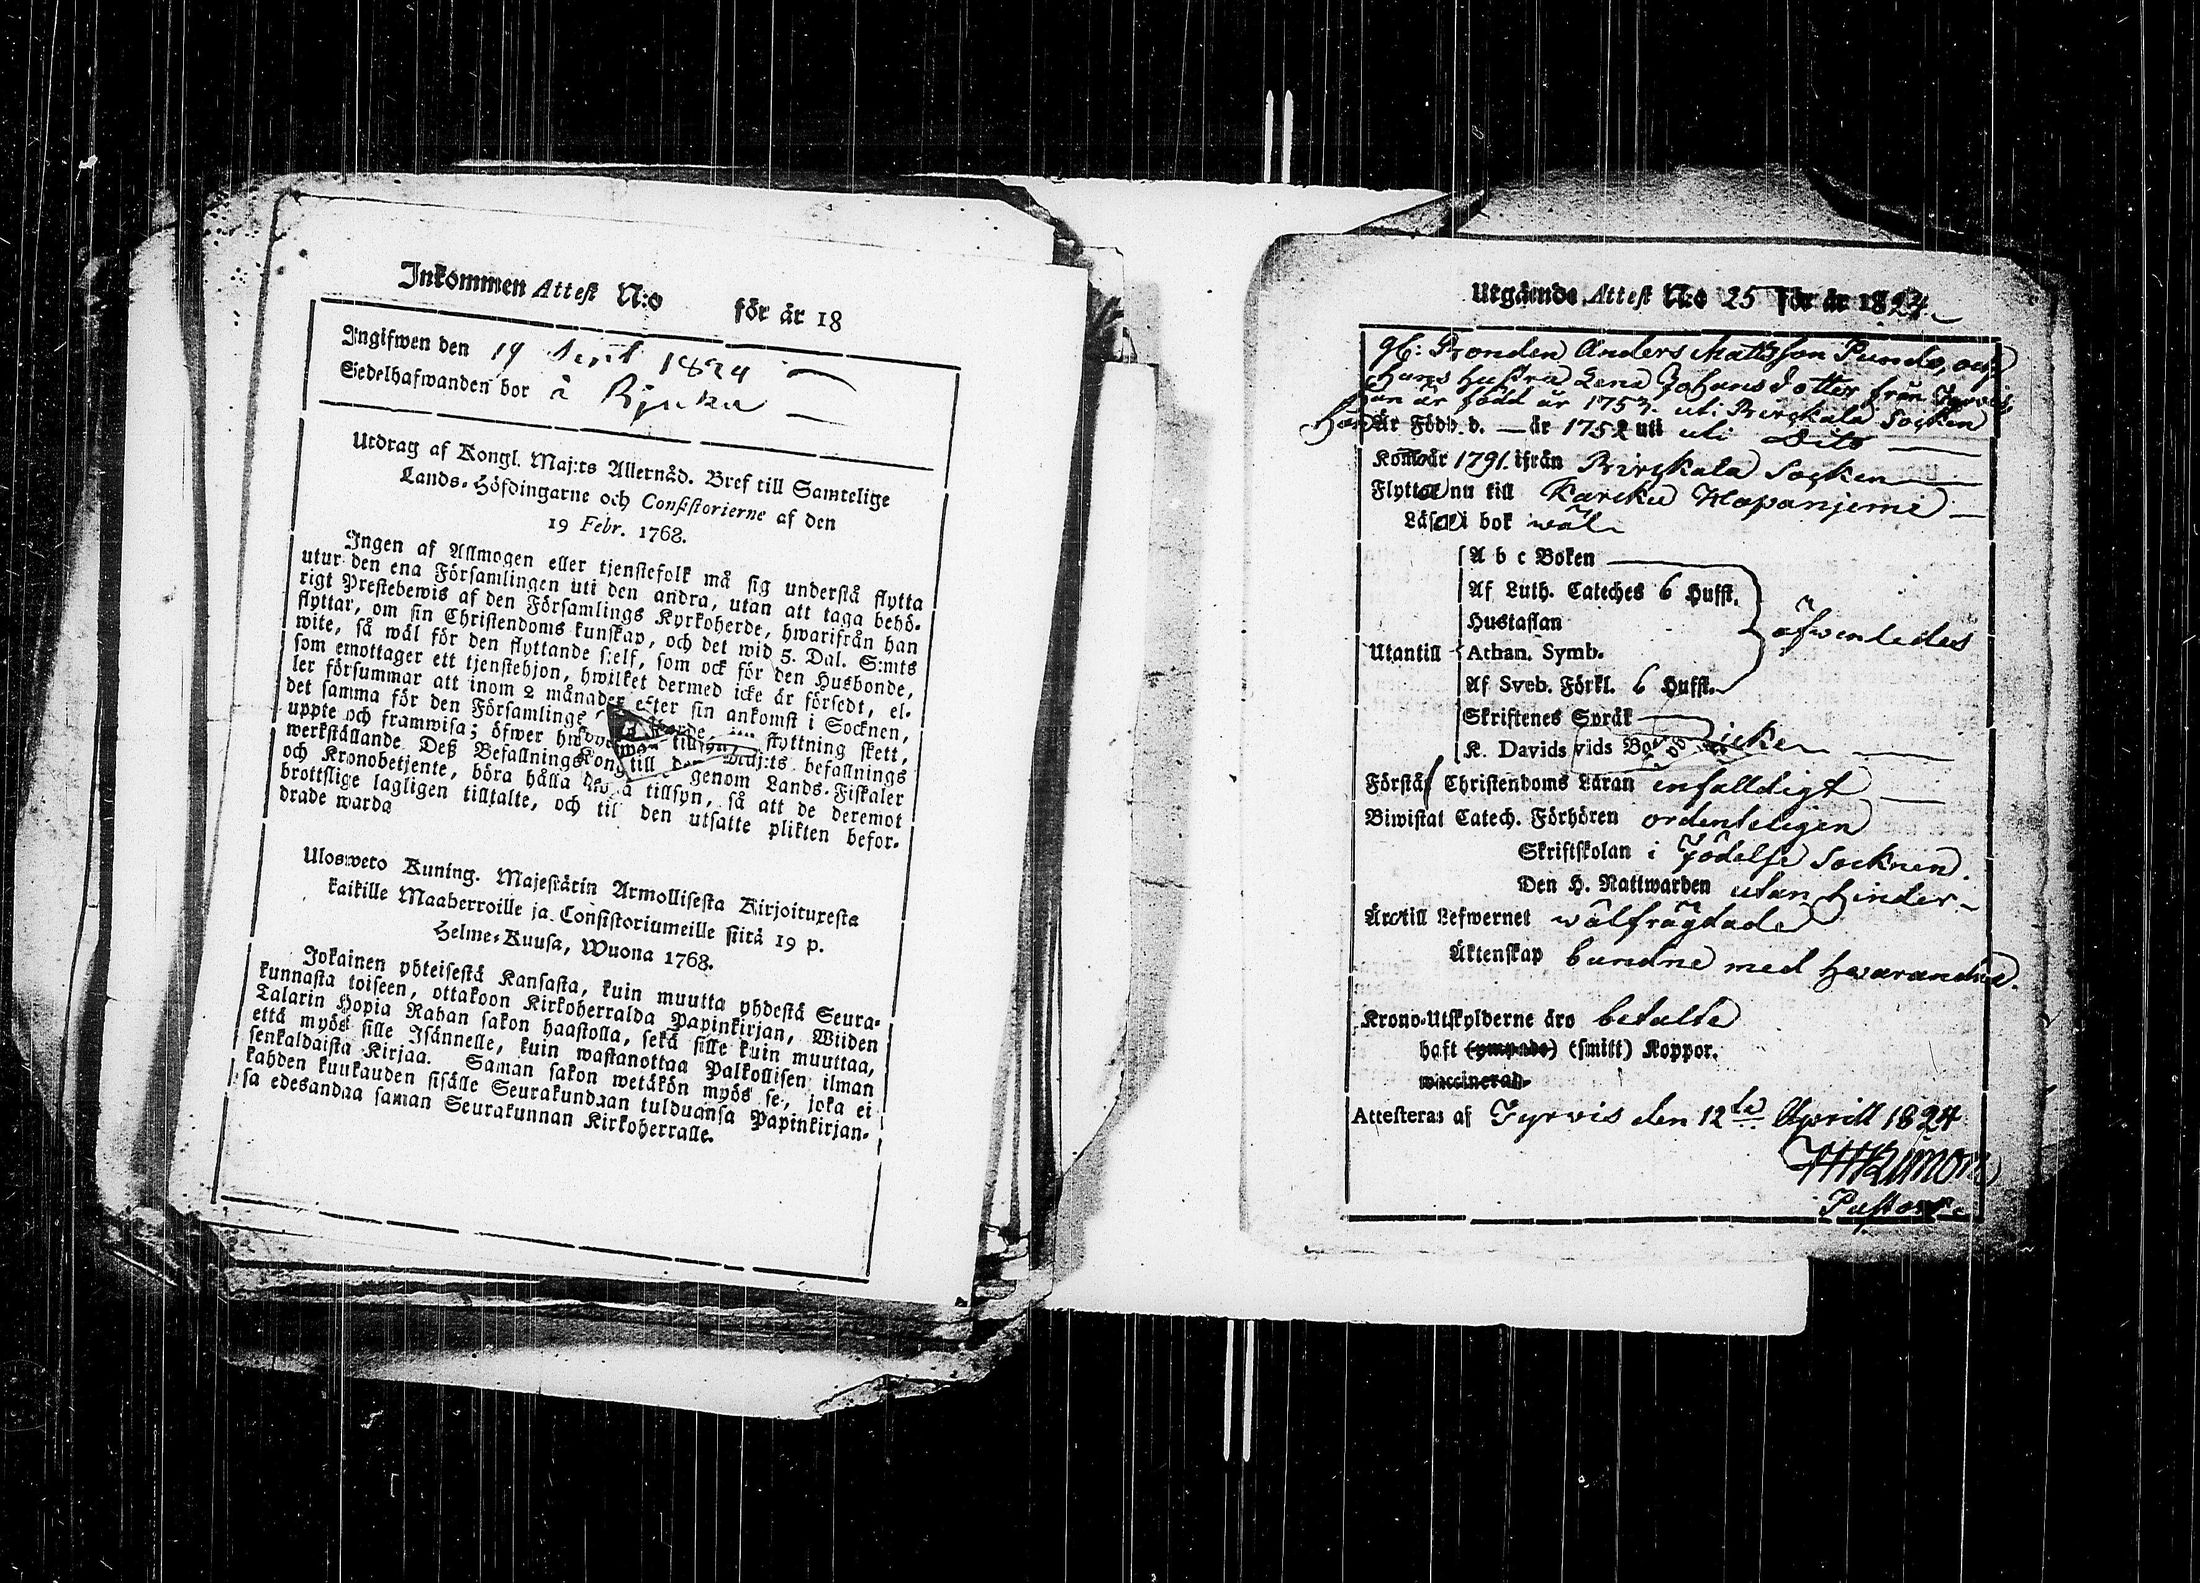 Inkommen Attest N:o för år 18
Ingifwen den 19 Sept 1824
Sedelhafwanden bor å
Utdrag af Kongl. Maj:ts Allernåd. Bref till Samtelige
Lands-Höfdingarne och Consistorierne af den
19 Febr. 1768.
Ingen af Allmogen eller tjenstefolk må sig understå flytta
utur den ena Församlingen uti den andra, utan att taga behö-
rigt Prestebewis af den Församlings Kyrkoherde, hwarifrån han
flyttar, om sin Christendoms kunskap, och det wid 5. Dal. S:mts
wite, så wäl för den flyttande sjelf, som ock för den Husbonde,
som emottager ett tjenstehjon, hwilket dermed icke är försedt, el-
ler försummar att inom 2 månader efter sin ankomst i Socknen,
det samma för den Församlings flyttning skett,
uppte och framwisa; öfwer befallnings
werkställande Deß Befallnings genom Lands-Fiskaler
och Kronobetjente, böra hålla tillsyn, så att de deremot
brottslige lagligen tilltalte, och till den utsatte plikten befor-
drade warda
Ulosweto Kuning. Majestätin Armollisesta Kirjoituxesta
kaikille Maaherroille ja Consistoriumeille siitä 19 p.
Helme-Kuusa, Wuona 1768.
Jokainen yhteisestä Kansasta, kuin muutta yhdestä Seura-
kunnasta toiseen, ottakoon Kirkoherralda Papinkirjan, Wiiden
Talarin Hopia Rahan sakon haastolla, sekä sille kuin muuttaa,
että myös sille Isännelle, kuin wastanottaa Palkollisen ilman
senkaldaista Kirjaa. Saman sakon wetäkön myös se, joka ei
kahden kuukauden sisälle Seurakundaan tulduansa Papinkirjan-
sa edesandaa saman Seurakunnan Kirkoherralle.
Utgående Attest N:o 25 för år 1824
Bonden Anders Mattsson och
hans hustru Lena Johansdotter från
hon är född år 1753. uti Birckala Socken
Han Är Född d. — år 1752 uti uti Dito
Kom år 1791. ifrån Birckala Socken
Flytta nu till Karcku Hapanjemi
Läsa i bok wäl
A b c Boken
Af Luth. Cateches 6 Hufst.
Hustaflan
Utantill Athan. Symb.
Af Sveb. Förkl. 6 Hufst.
äfwenledes
Skriftenes Språk
K. Davids icke
Förstå Christendoms Läran enfalldigt
Biwistat Catech. Förhören ordenteligen
Skriftskolan i Födelse Socknen.
Den H. Nattwarden utan hinder
Äro till Lefwernet wälfrägdade
Äktenskap bundne med hwarandra.
Krono-Utskylderne äro betalte
haft (ympade) (smitt) Koppor.
waccinerad
Attesteras af Tyrvis den 12te Aprill 1824
Pastor